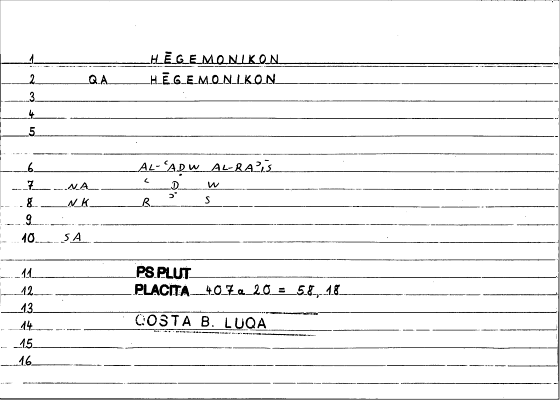 1 HĒGEMONIKON
2 QA HĒGEMONIKON
3
4
5
6 AL-ʿAḌW AL-RAʾĪS
7 NA ʿ Ḍ W
8 NK R ʾ S
9
10 SA
11 PS PLUT
12 PLACITA 407a 20 = 58, 18
13
14 COSTA B. LUQA
15
16